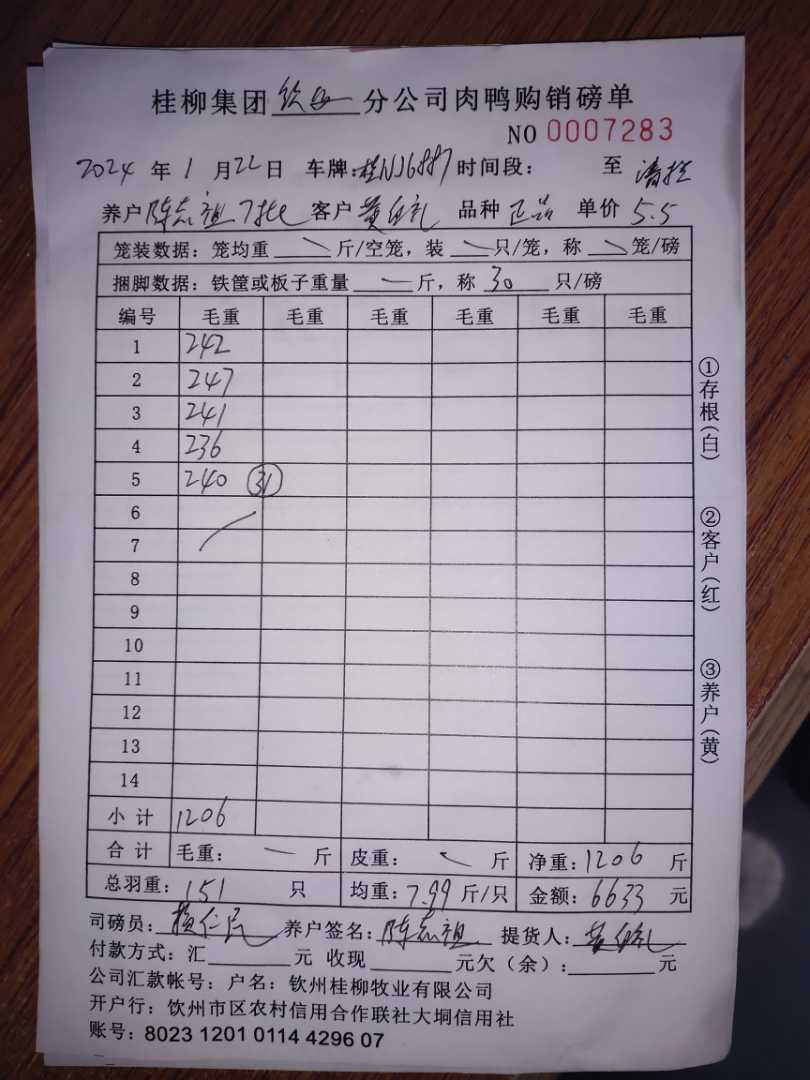 桂柳集团钦州分公司肉鸭购销磅单
NO 0007283
2024年1月22日 车牌:桂NJ6887 时间段: 至 清栏
养户陈志祖7批 客户黄 礼 品种正品 单价5.5
笼装数据:笼均重 — 斤/空笼,装 — 只/笼,称 — 笼/磅
捆脚数据:铁筐或板子重量 — 斤,称 30 只/磅
编号 毛重 毛重 毛重 毛重 毛重 毛重
1 242
2 247
3 241
4 236
5 240 31
6
7
8
9
10
11
12
13
14
小计 1206
合计 毛重: — 斤 皮重: — 斤 净重:1206 斤
总羽重:151 只 均重:7.99 斤/只 金额:6633 元
司磅员: 仁民 养户签名:陈志祖 提货人:黄 礼
付款方式:汇 元 收现 元欠(余): 元
公司汇款帐号:户名:钦州桂柳牧业有限公司
开户行:钦州市区农村信用合作联社大垌信用社
账号:8023 1201 0114 4296 07
①存根(白)
②客户(红)
③养户(黄)